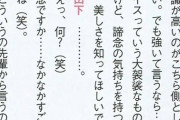 論が高いのがこちら側とし
。でも強いて言うなら…
ースっていう大袈裟なもの
けど、諦念の気持ちを持つ
美しさを知ってほしいで
山下 ………。
えっ、何?(笑)
念ですか……なかなかすご
ね(笑)。
こういうの先輩から言うの